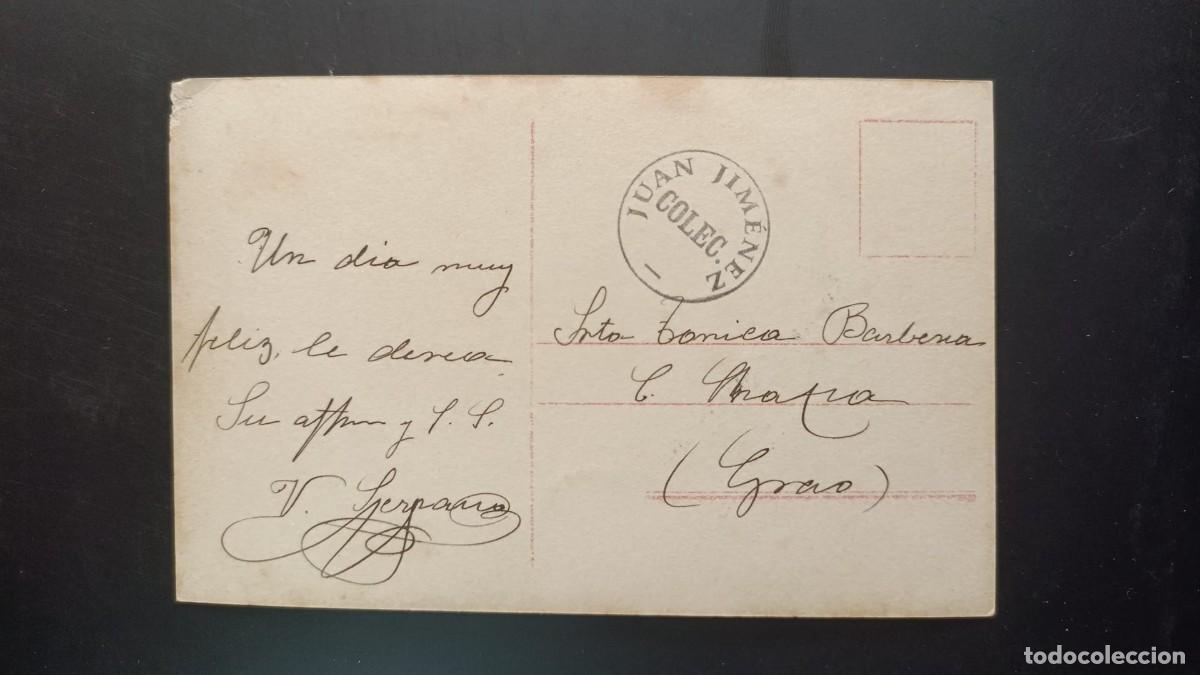 Un dia muy
feliz, le desea
Su affmo y S. S.
V. Serrano
JUAN JIMÉNEZ
COLEC.
Srta Barbera
C.
(Grao)
todocoleccion